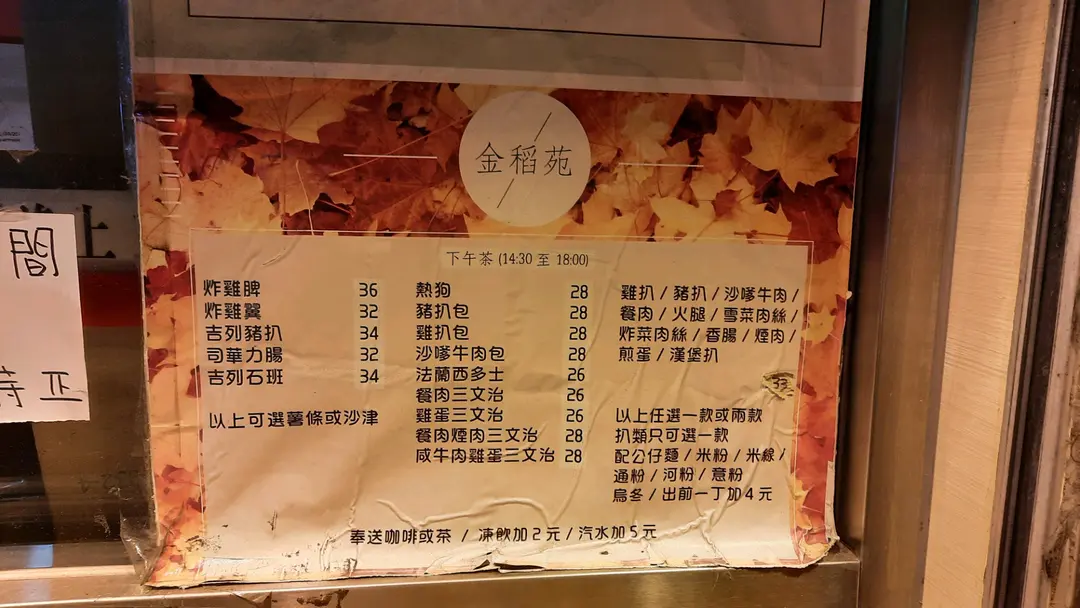 金稻苑
下午茶 (14:30 至 18:00)
炸雞脾 36
炸雞翼 32
吉列豬扒 34
司華力腸 32
吉列石班 34
以上可選薯條或沙津
熱狗 28
豬扒包 28
雞扒包 28
沙嗲牛肉包 28
法蘭西多士 26
餐肉三文治 26
雞蛋三文治 26
餐肉煙肉三文治 28
咸牛肉雞蛋三文治 28
雞扒 / 豬扒 / 沙嗲牛肉 /
餐肉 / 火腿 / 雪菜肉絲 /
炸菜肉絲 / 香腸 / 煙肉 /
煎蛋 / 漢堡扒
33
以上任選一款或兩款
扒類只可選一款
配公仔麵 / 米粉 / 米線 /
通粉 / 河粉 / 意粉
烏冬 / 出前一丁加 4 元
奉送咖啡或茶 / 凍飲加 2 元 / 汽水加 5 元
間
正